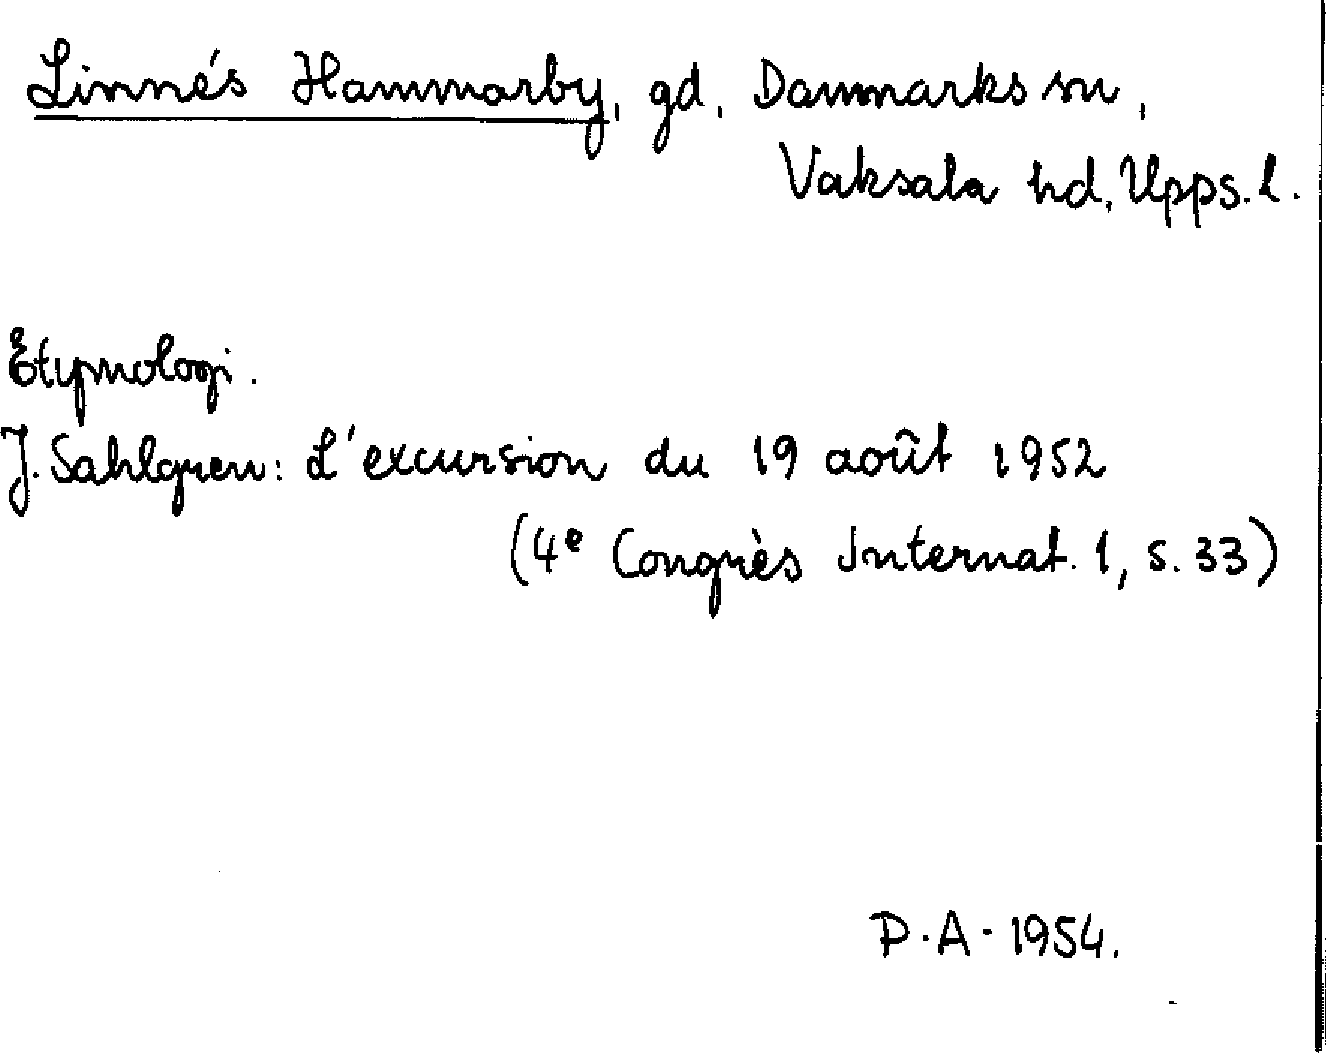 Linnés Hammarby, gd, Danmarks sn,
Vaksala hd, Upps. l.
Etymologi.
J. Sahlgren: L'excursion du 19 août 1952
(4e Congrès Internat. 1, s. 33)
P. A. 1954.